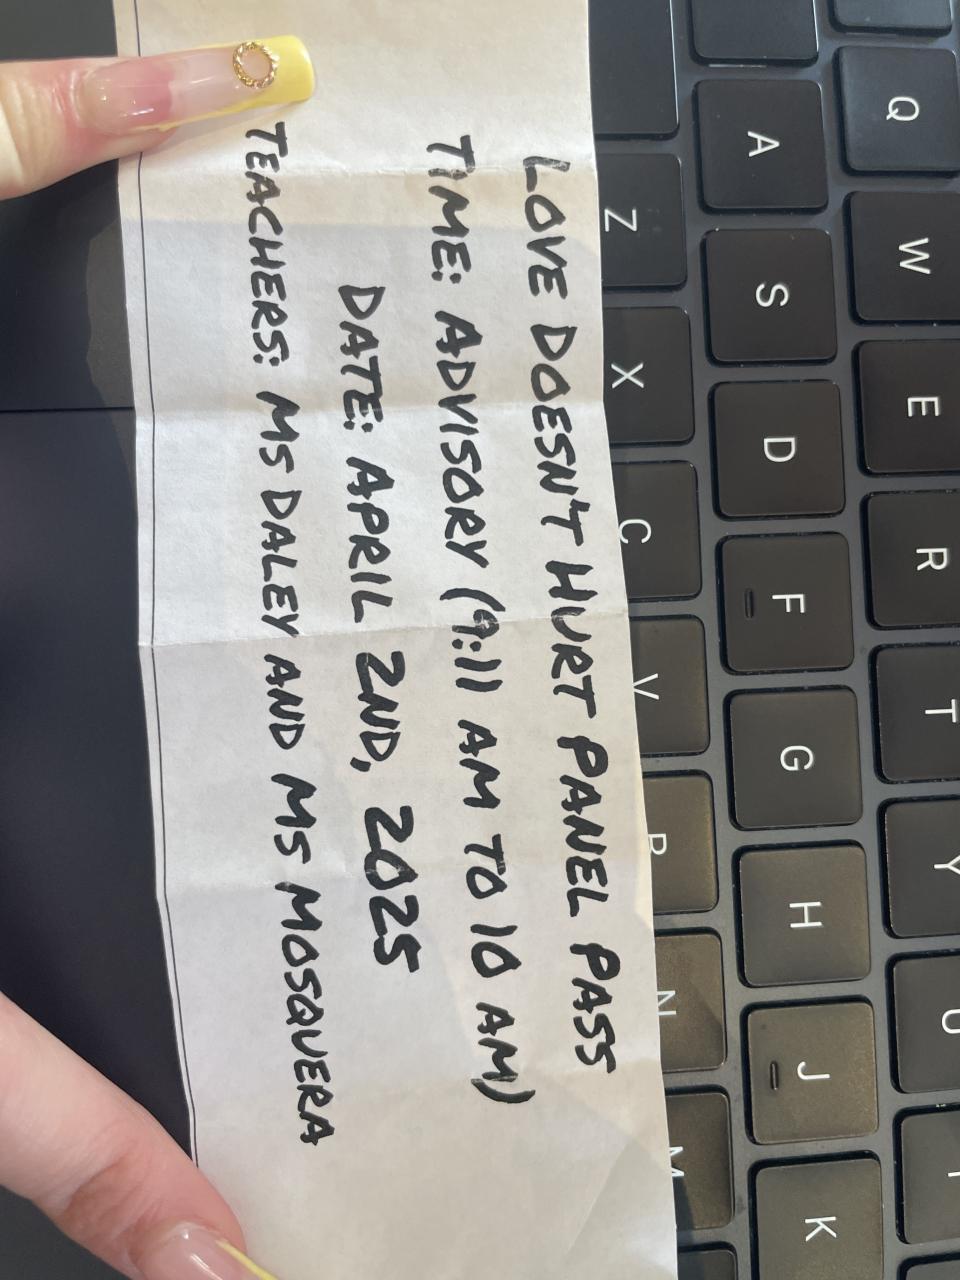 LOVE DOESN'T HURT PANEL PASS
TIME: ADVISORY (9:11 AM TO 10 AM)
DATE: APRIL 2ND, 2025
TEACHERS: MS DALEY AND MS MOSQUERA
Q W E R T Y U
A S D F G H J K
Z X C V B N M